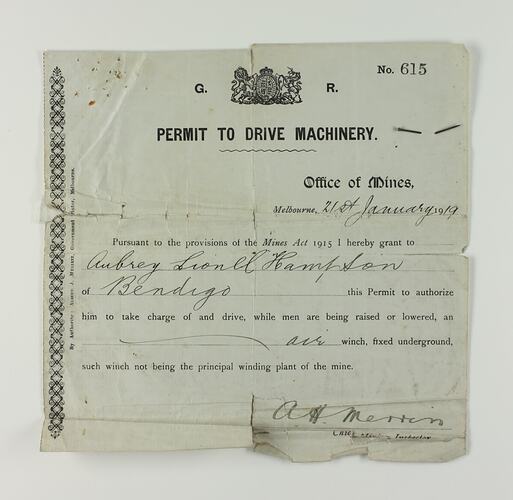 No. 615
G. R.
PERMIT TO DRIVE MACHINERY.
Office of Mines,
Melbourne, 21st January 1919
Pursuant to the provisions of the Mines Act 1915 I hereby grant to
Aubrey Lionel Hampson
of Bendigo this Permit to authorize
him to take charge of and drive, while men are being raised or lowered, an
air winch, fixed underground,
such winch not being the principal winding plant of the mine.
A H Merrin
Chief Inspector
By Authority: Government Printer, Melbourne.